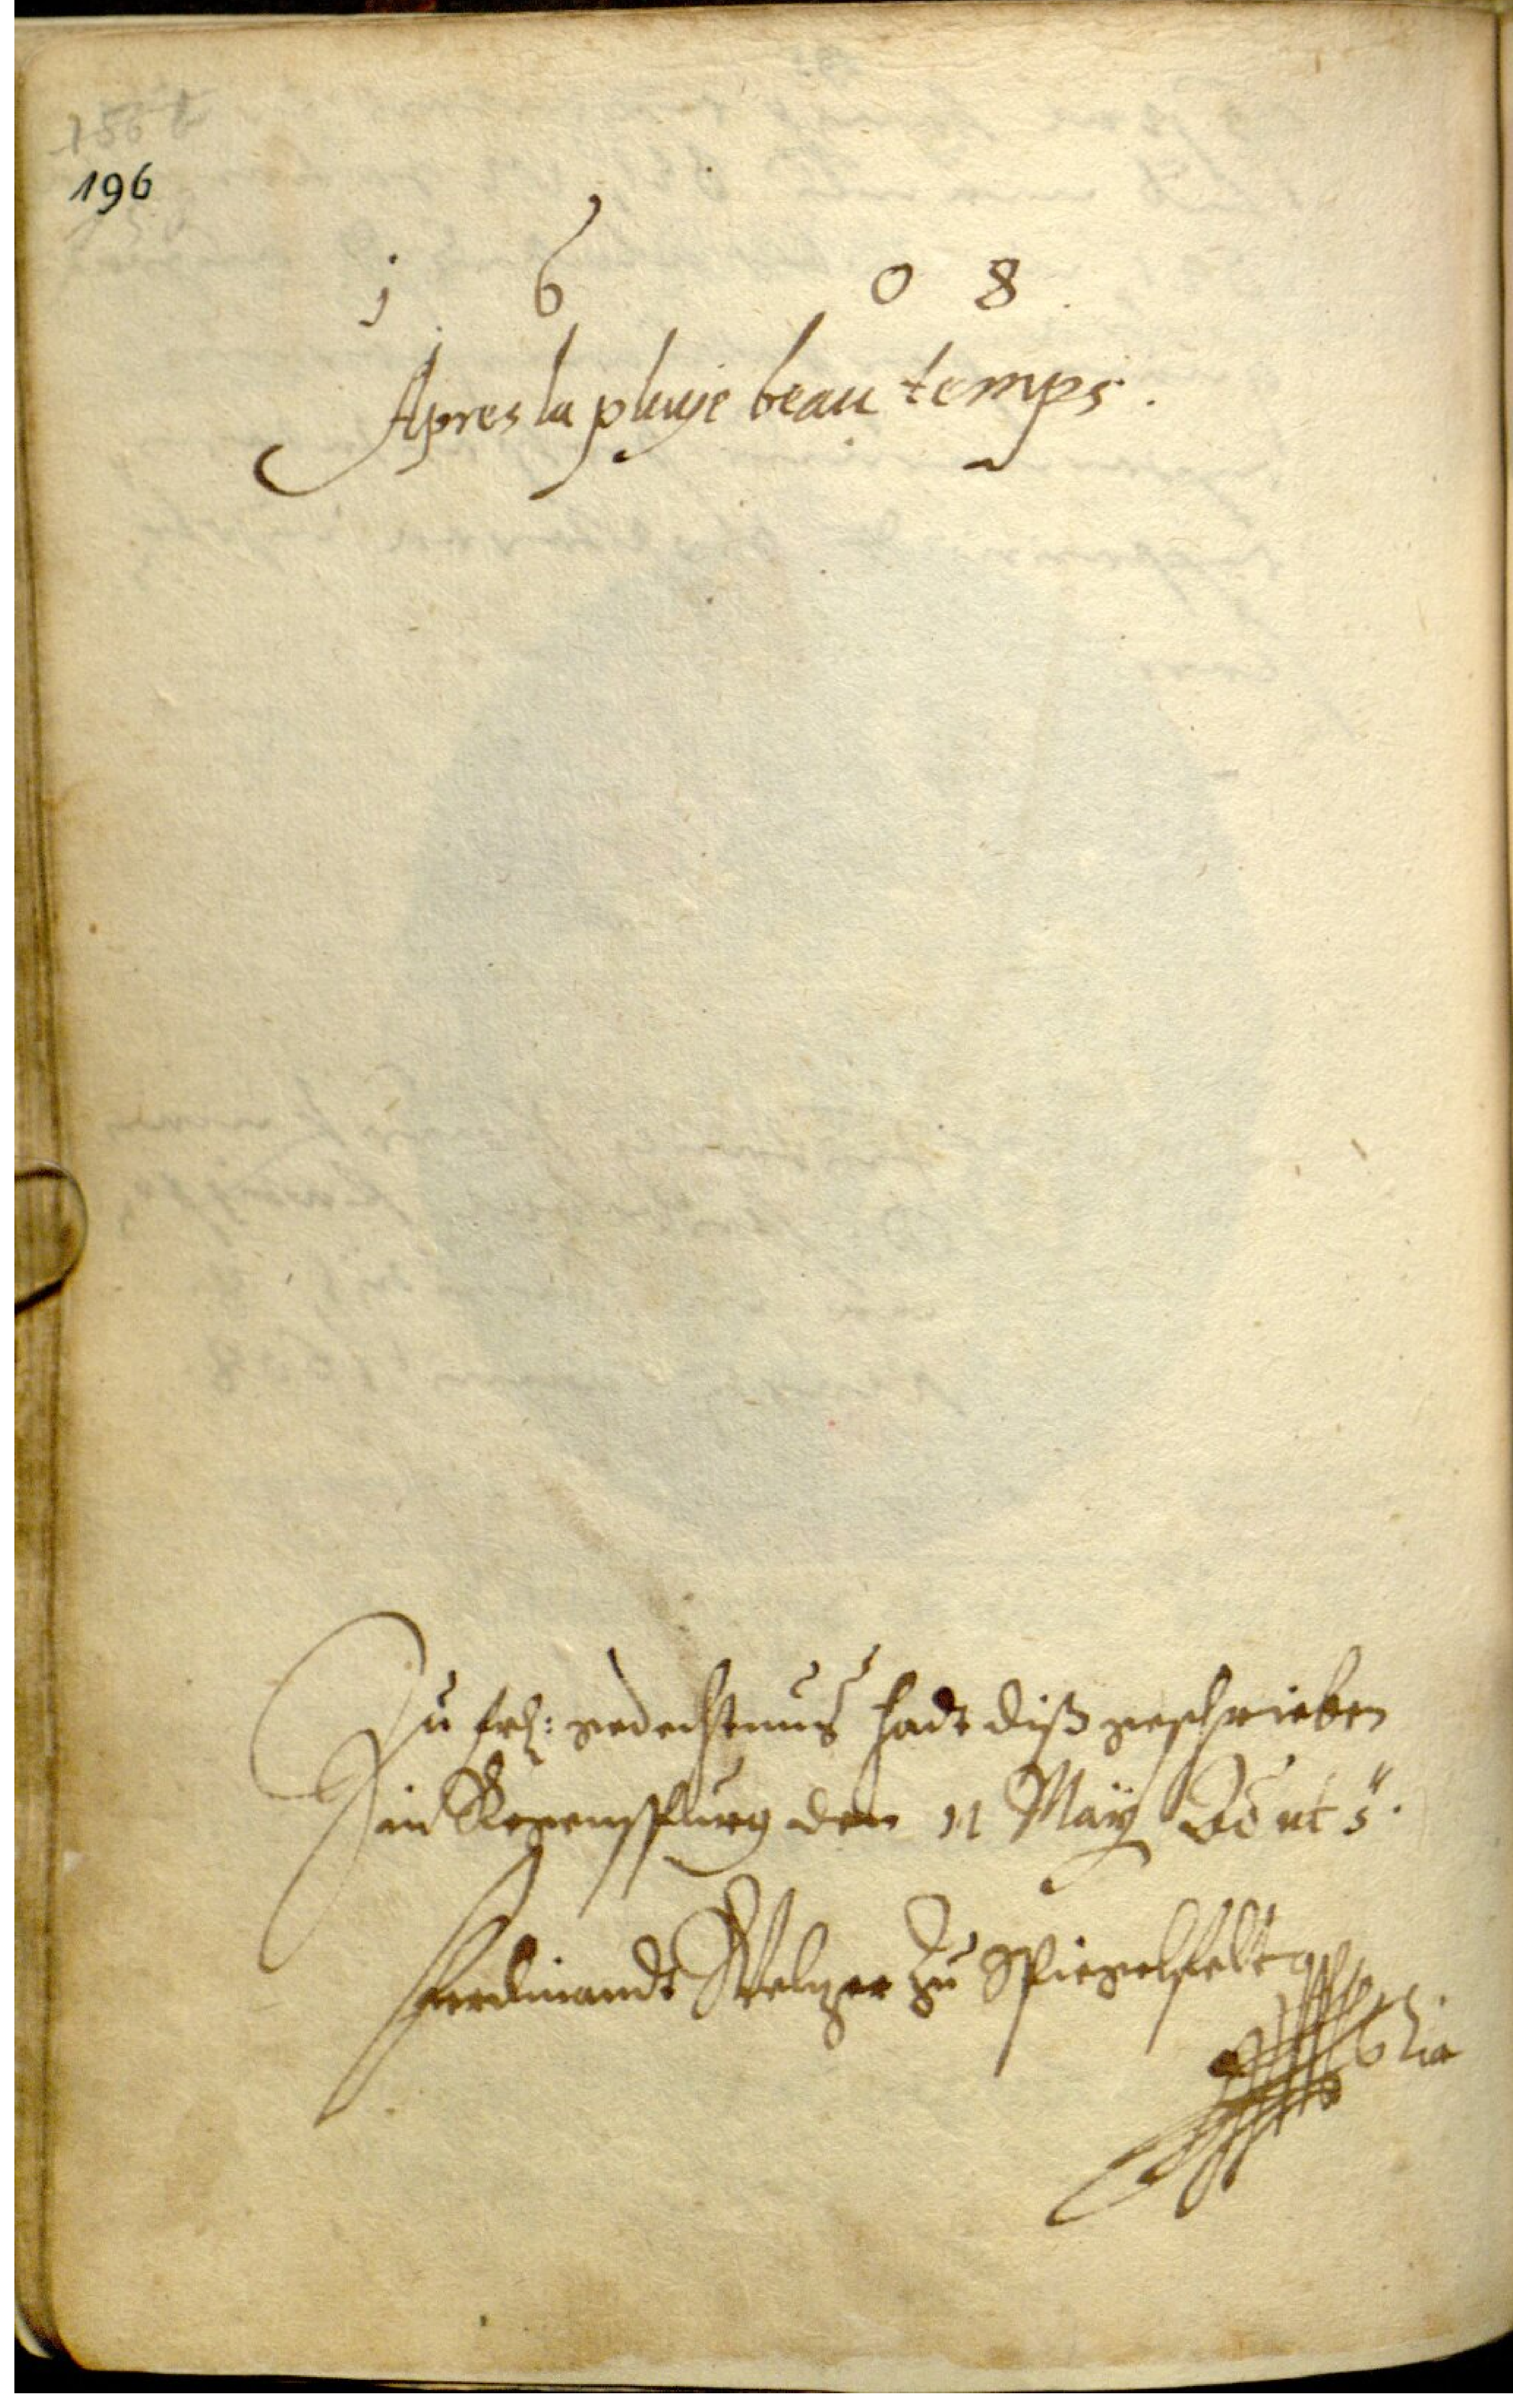 196
1 6 0 8
Apres la pluye beau temps.
Zu frl: gedechtnus hadt diß geschrieben
in Regenspurg den 11 May Ao ut s.
Ferdinandt Welzer zu Spiegelfeldt